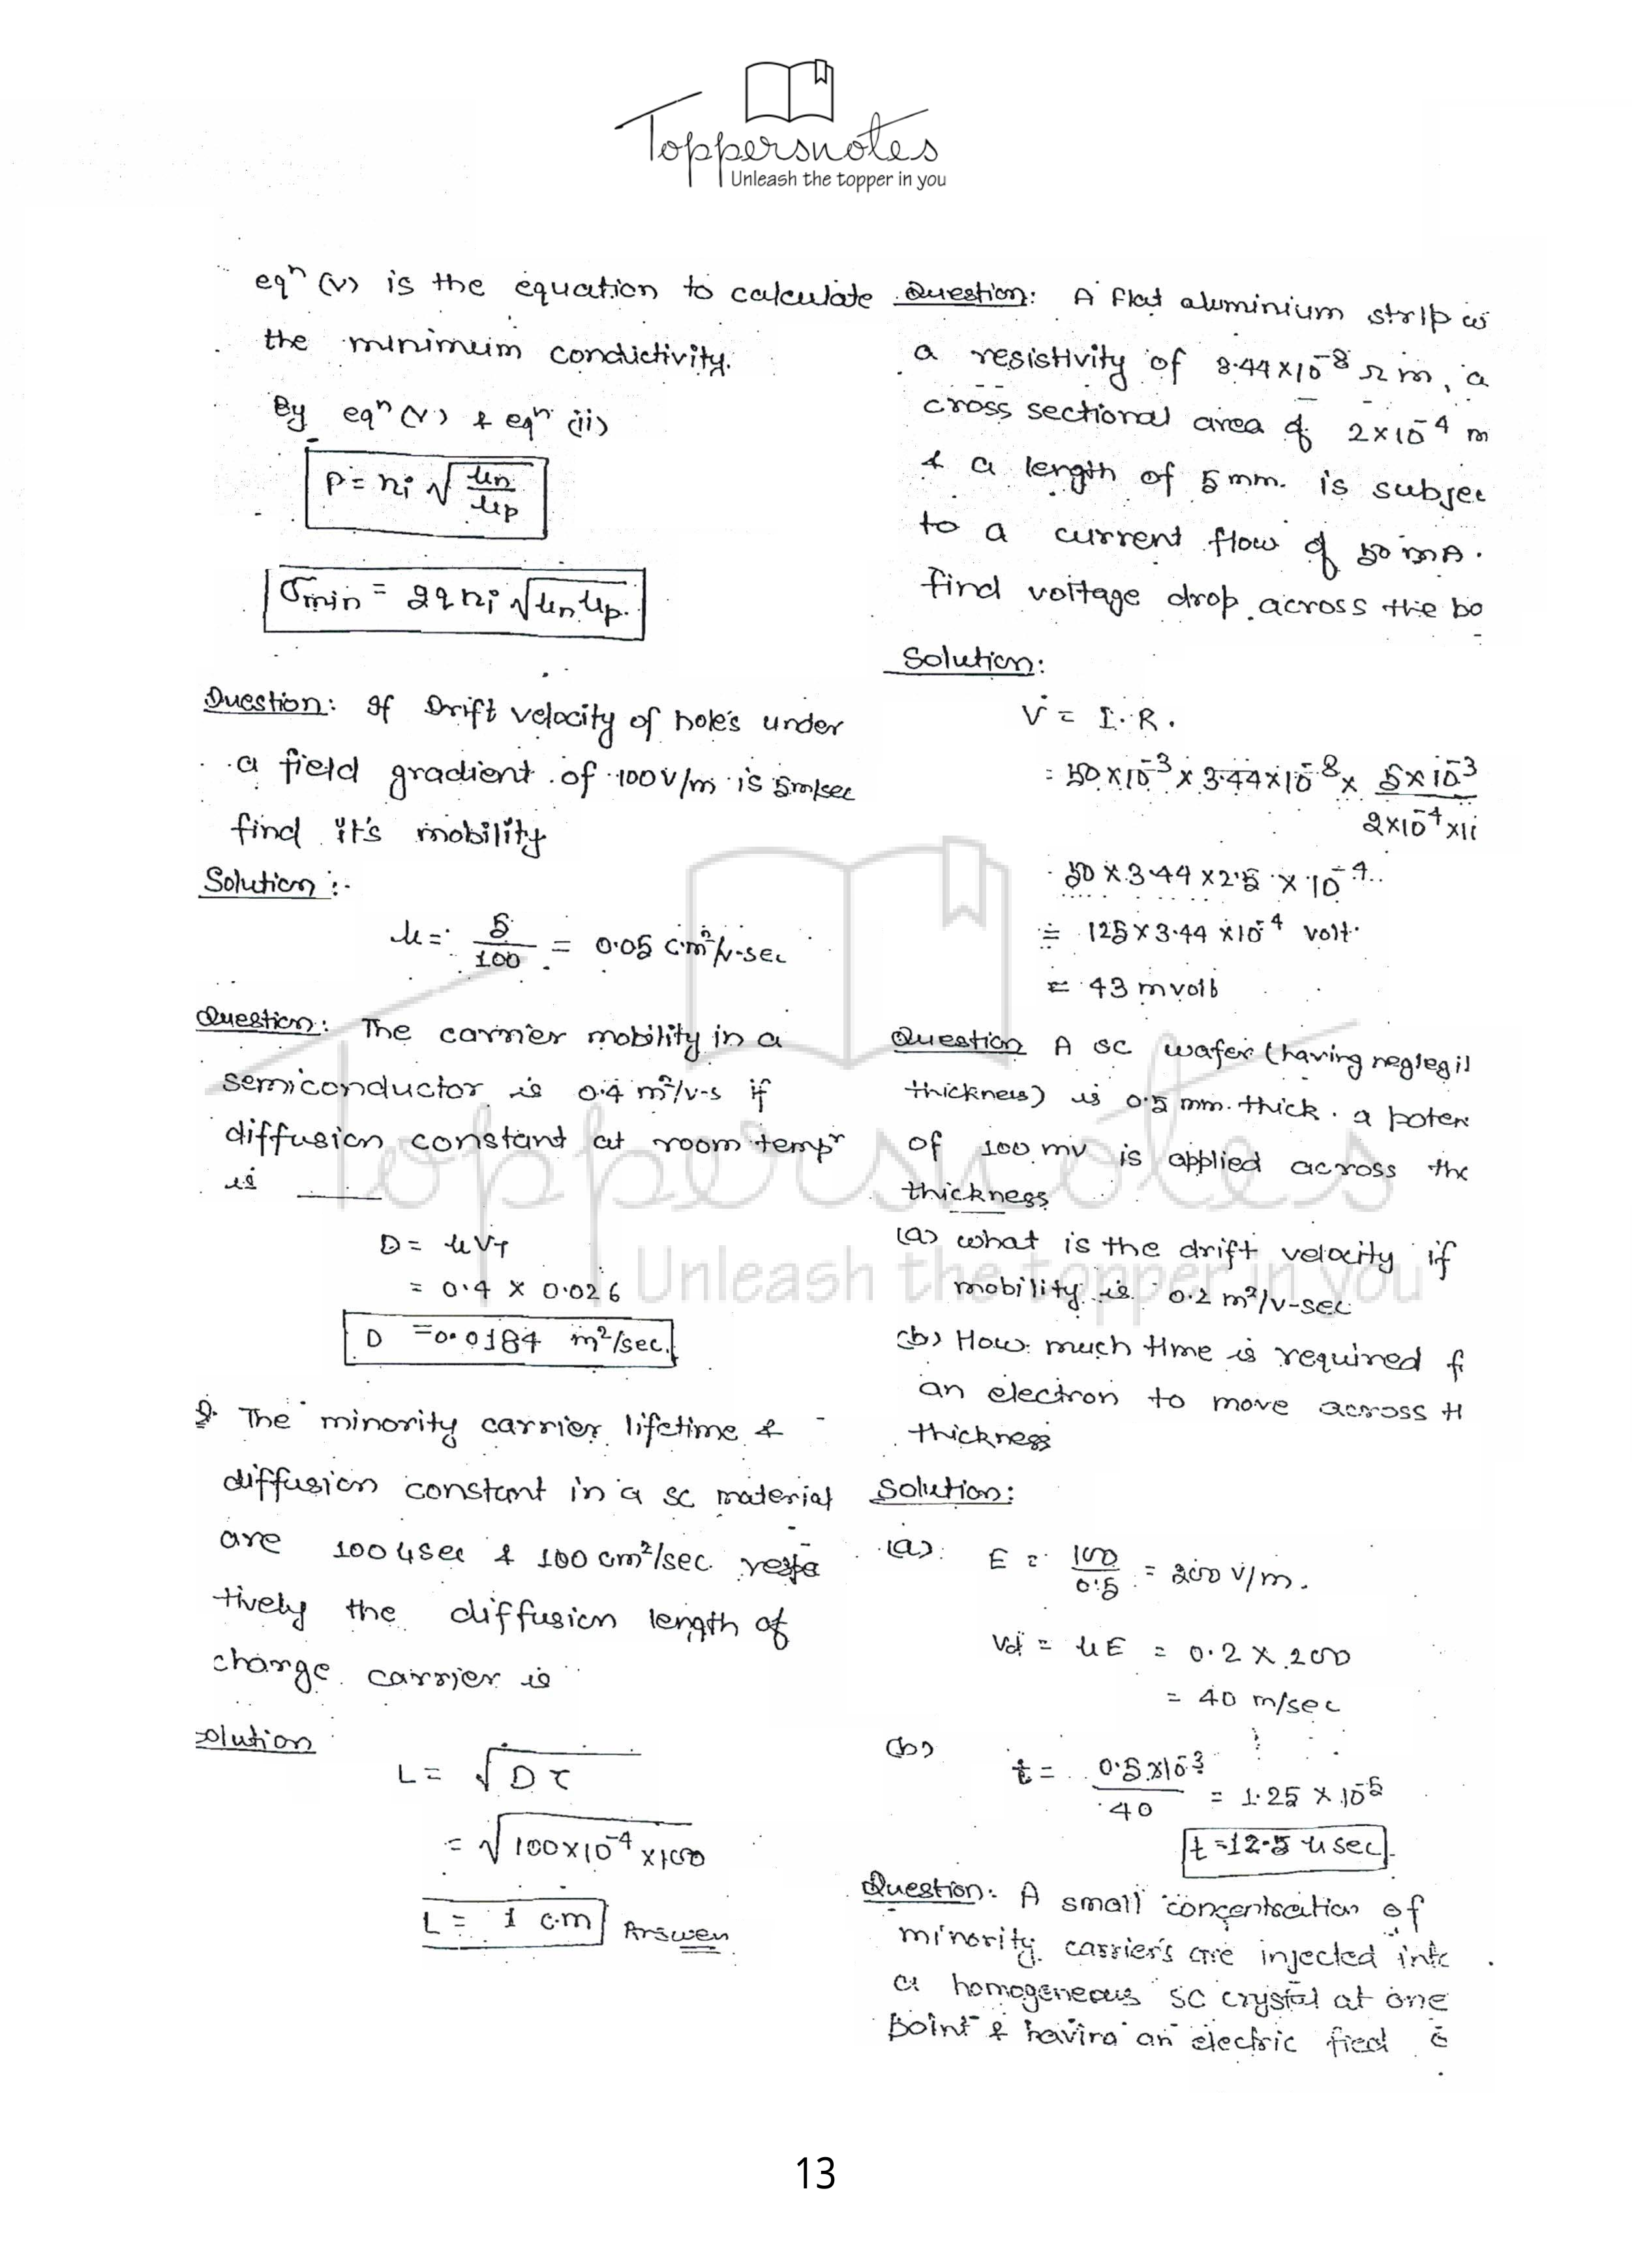 Toppersnotes
Unleash the topper in you
eqⁿ (v) is the equation to calculate
the minimum conductivity.
By eqⁿ (v) & eqⁿ (ii)
P = ni √(μn/μp)
σmin = 2q ni √(μn μp)
Question: If Drift velocity of hole's under
a field gradient of 100 V/m is 5m/sec
find it's mobility
Solution :-
μ = 5/100 = 0.05 cm²/v-sec
Question: The carrier mobility in a
semiconductor is 0.4 m²/v-s if
diffusion constant at room tempr
is ______
D = μVT
= 0.4 × 0.026
D = 0.0184 m²/sec.
Q. The minority carrier lifetime &
diffusion constant in a sc material
are 100 μsec & 100 cm²/sec. respe
tively the diffusion length of
charge carrier is
olution
L = √(Dτ)
= √(100×10⁻⁴×100)
L = 1 cm Answer
Question: A flat aluminium strip
a resistivity of 3.44×10⁻⁸ Ω m, a
cross sectional area of 2×10⁻⁴ m
& a length of 5 mm. is subjec
to a current flow of 50 mA.
find voltage drop across the bo
Solution:
V = I.R.
= 50×10⁻³ × 3.44×10⁻⁸ × 5×10⁻³
2×10⁻⁴
50 × 3.44 × 2.5 × 10⁻⁴
= 125 × 3.44 × 10⁻⁴ volt.
= 43 mvolt
Question A SC wafer (having neglegil
thickness) is 0.5 mm. thick. a poten
of 100 mv is applied across the
thickness
(a) what is the drift velocity if
mobility is 0.2 m²/v-sec
(b) How much time is required f
an electron to move across
thickness
Solution:
(a) E = 100/0.5 = 200 V/m.
Vd = μE = 0.2 × 200
= 40 m/sec
(b) t = 0.5×10⁻³/40 = 1.25 × 10⁻⁵
t = 12.5 μsec
Question: A small concentration of
minority carrier's are injected into
a homogeneous SC crystal at one
point & having an electric field
13